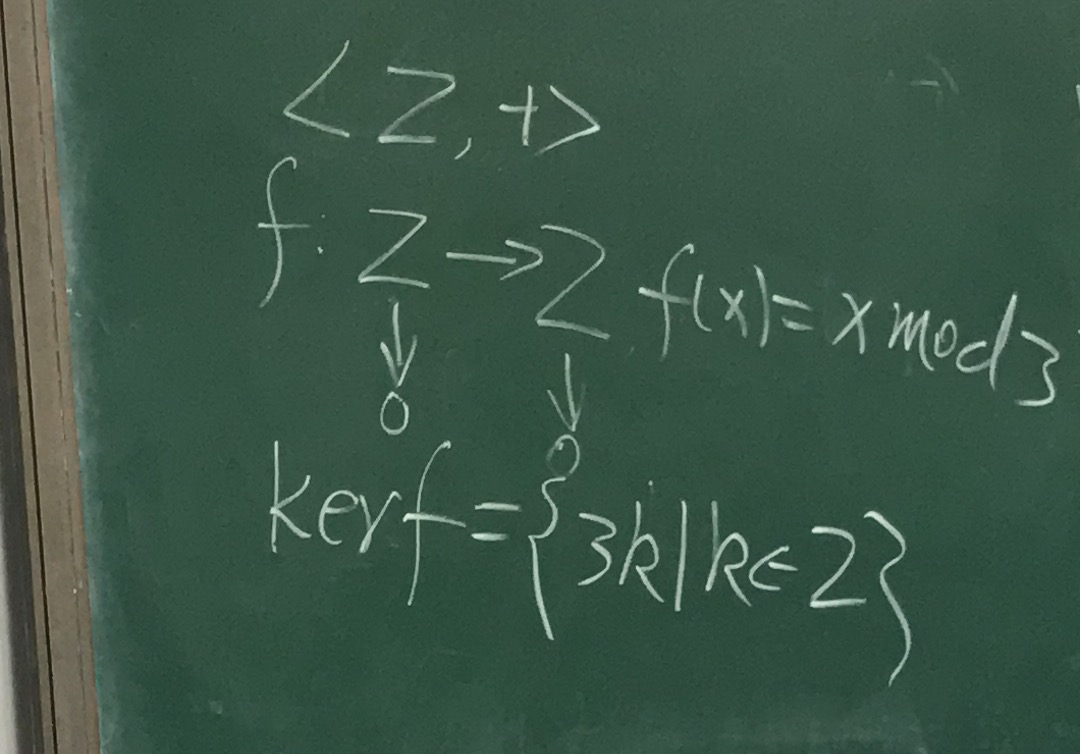 <Z, +>
f: Z → Z f(x) = x mod 3
↓ ↓
0 0
ker f = {3k | k ∈ Z}